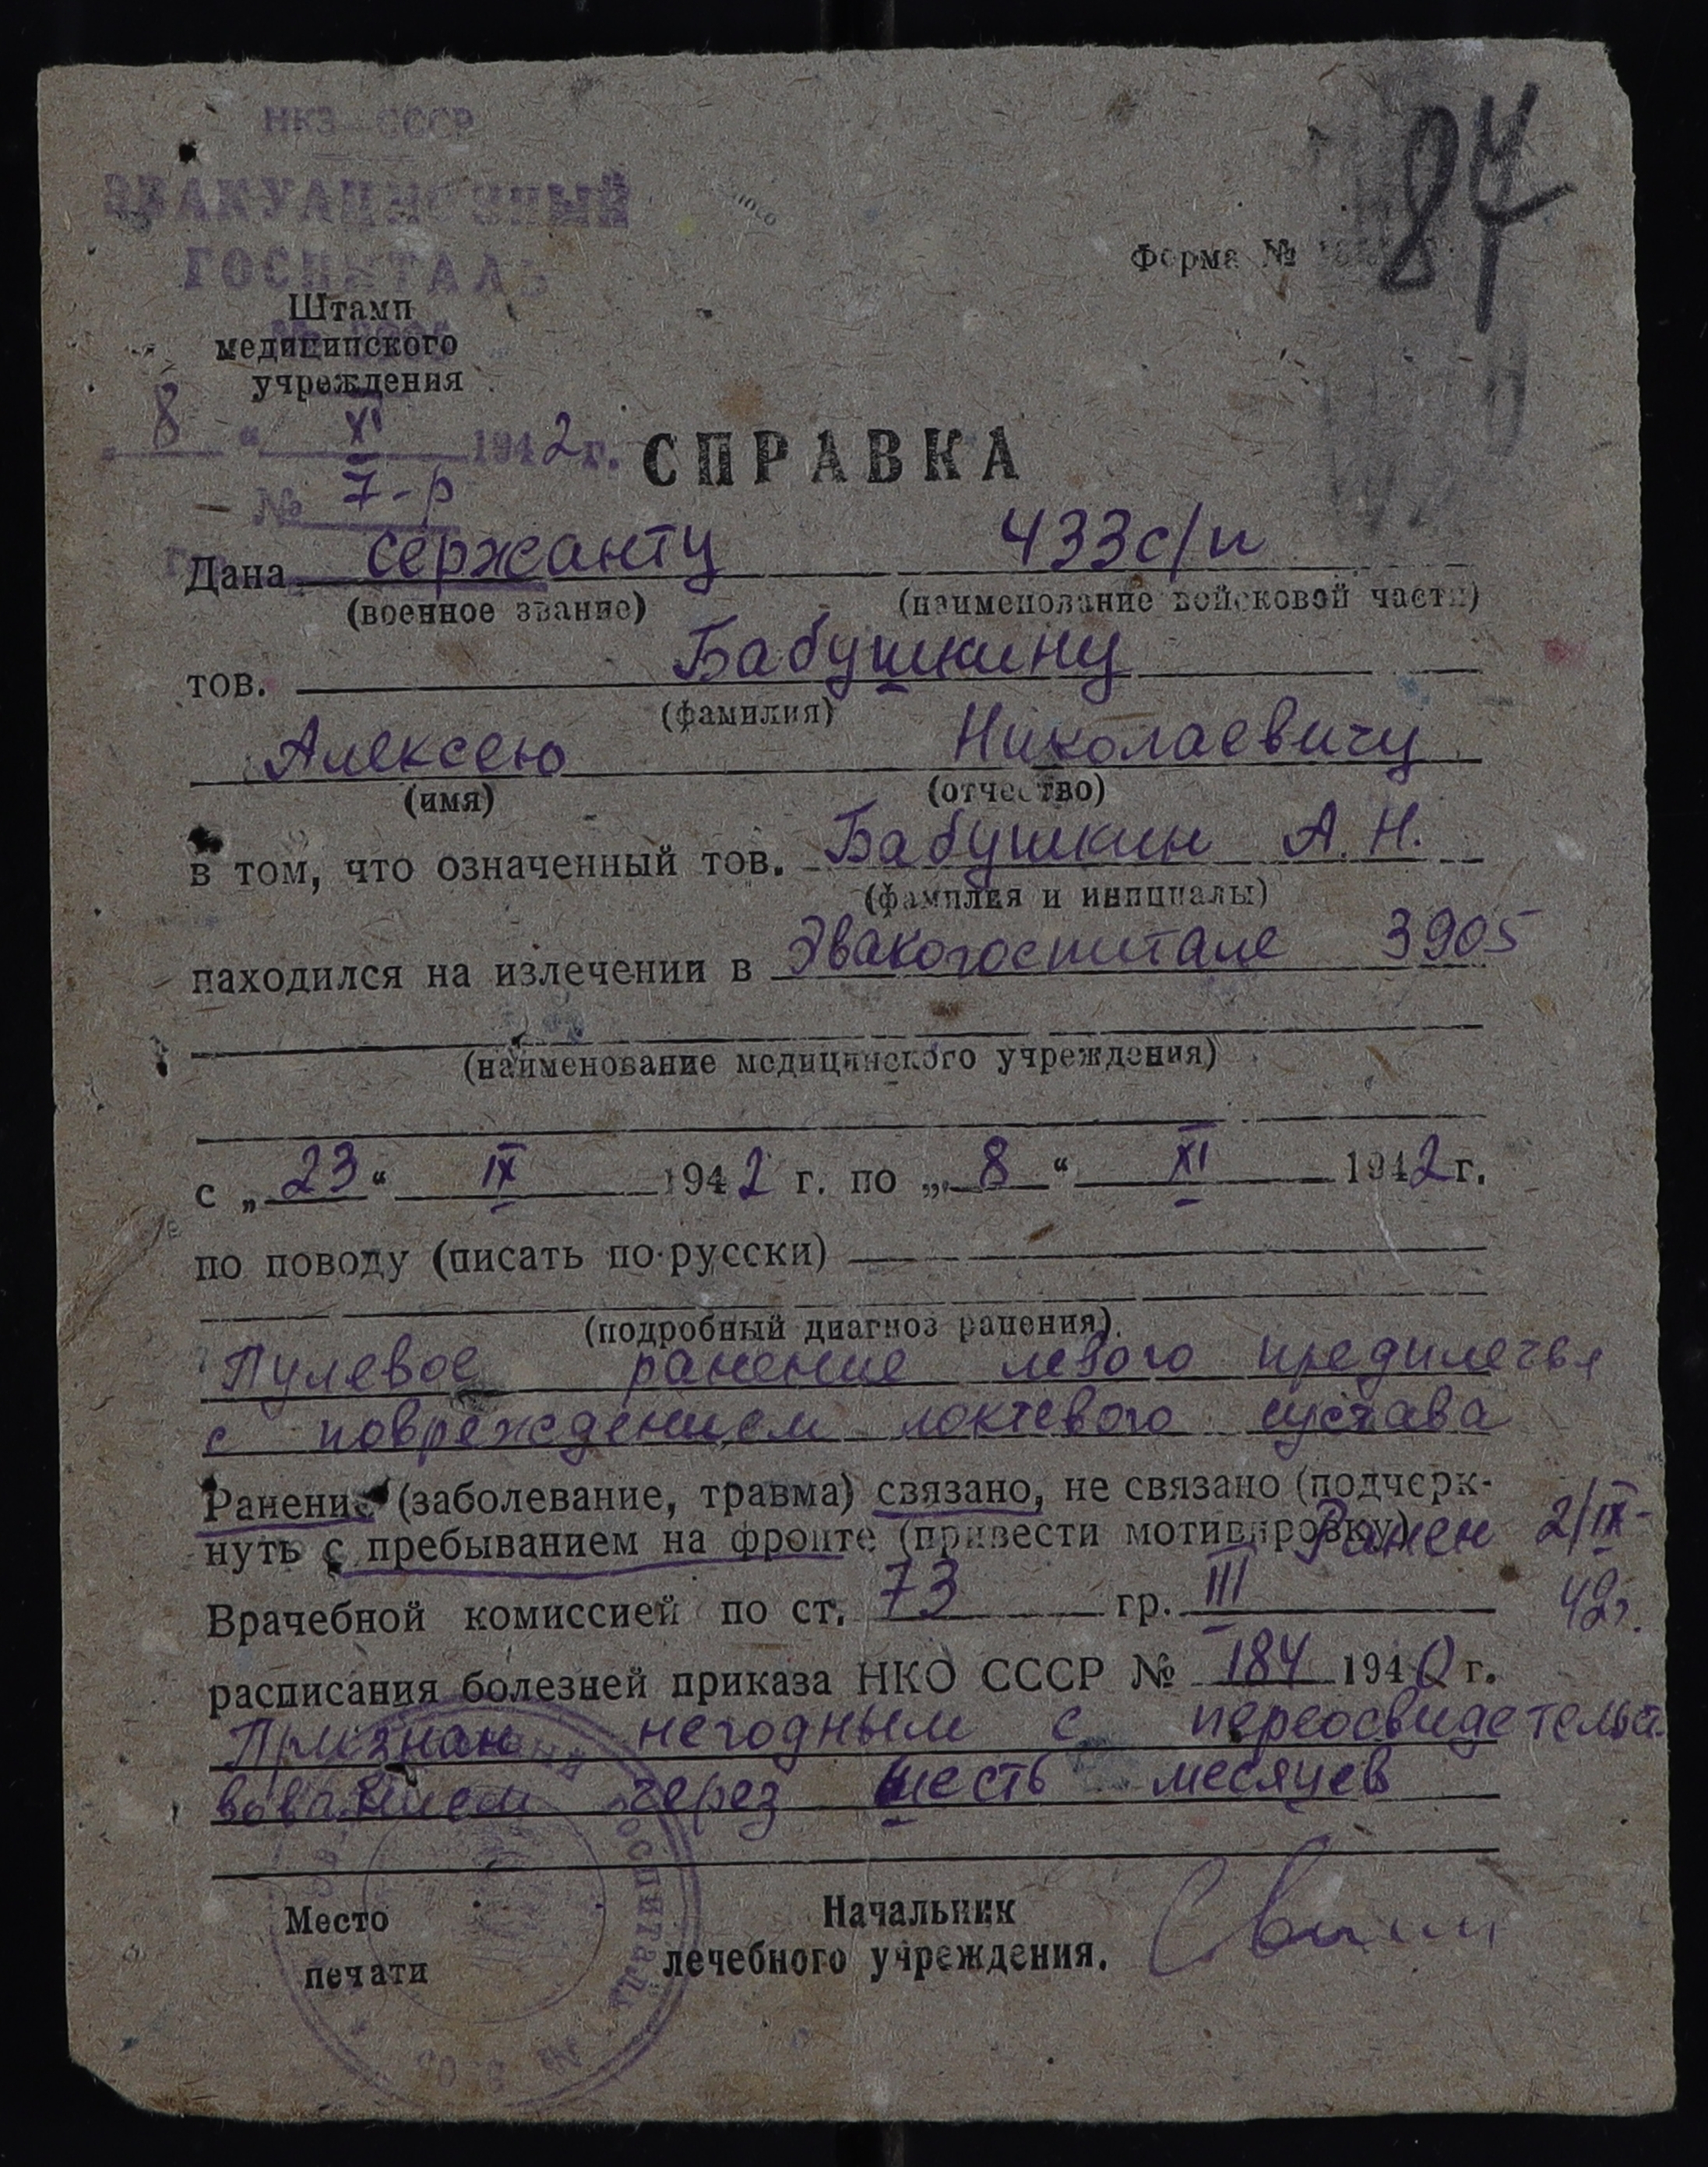 84
НКЗ СССР
ЭВАКУАЦИОННЫЙ
ГОСПИТАЛЬ
Форма №
Штамп
медицинского
учреждения
„ 8 “ XI 1942 г.
№ 7-р
СПРАВКА
Дана сержанту 433 с/п
(военное звание) (наименование войсковой части)
тов. Бабушкину
(фамилия)
Алексею Николаевичу
(имя) (отчество)
в том, что означенный тов. Бабушкин А. Н.
(фамилия и инициалы)
находился на излечении в Эвакогоспитале 3905
(наименование медицинского учреждения)
с „ 23 “ IX 1942 г. по „ 8 “ XI 1942 г.
по поводу (писать по-русски)
(подробный диагноз ранения)
Пулевое ранение левого предплечья
с повреждением локтевого сустава
Ранение (заболевание, травма) связано, не связано (подчерк-
нуть с пребыванием на фронте (привести мотивировку) Ранен 2/IX-
42г.
Врачебной комиссией по ст. 73 гр. III
расписания болезней приказа НКО СССР № 184 1940 г.
Признан негодным с переосвидетельст-
вованием через шесть месяцев
Место
печати
Начальник
лечебного учреждения.